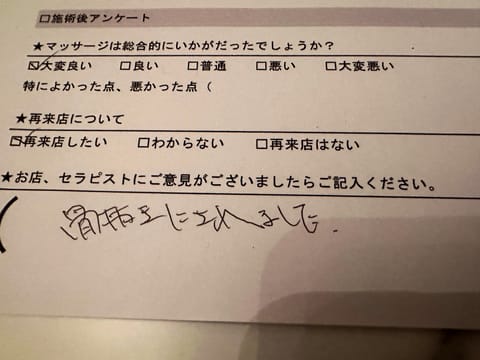 □施術後アンケート
★マッサージは総合的にいかがだったでしょうか？
☑大変良い □良い □普通 □悪い □大変悪い
特によかった点、悪かった点（
★再来店について
☑再来店したい □わからない □再来店はない
★お店、セラピストにご意見がございましたらご記入ください。
にされました.